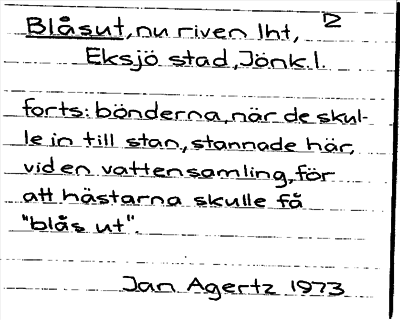 Blåsut, nu riven lht,
Eksjö stad, Jönk.l.
forts: bönderna, när de skul-
le in till stan, stannade här,
vid en vattensamling, för
att hästarna skulle få
"blås ut".
Jan Agertz 1973